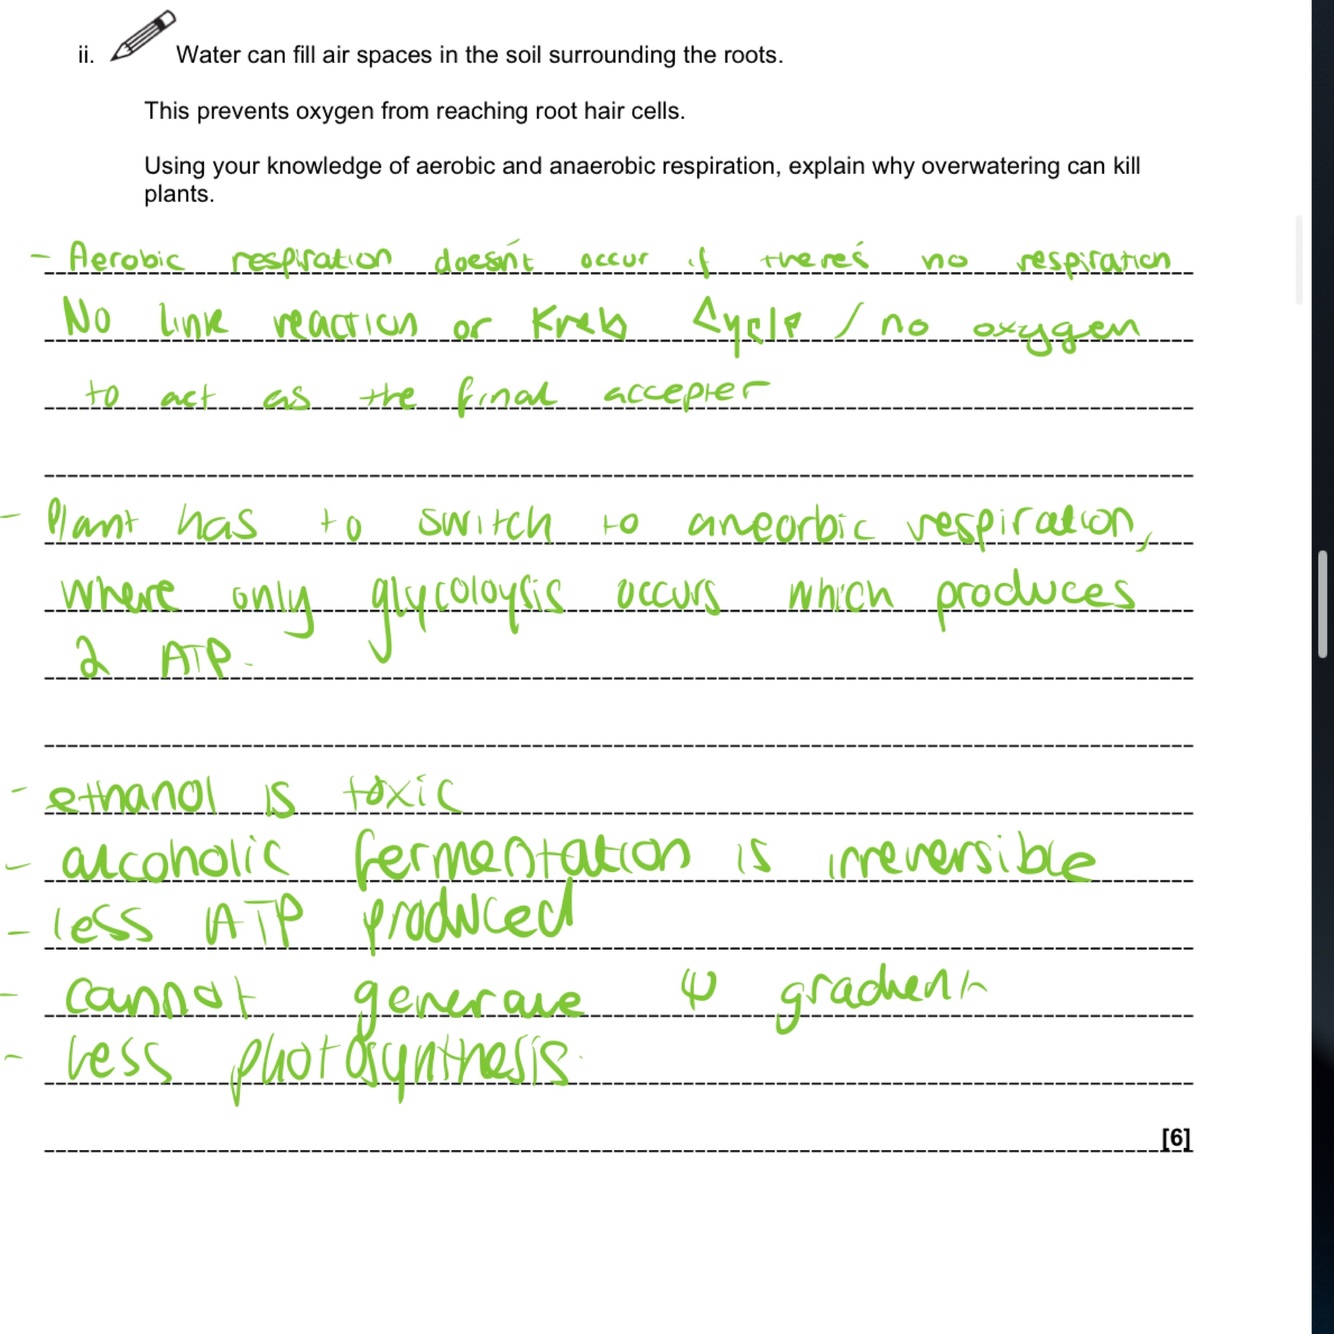 ii. Water can fill air spaces in the soil surrounding the roots.
This prevents oxygen from reaching root hair cells.
Using your knowledge of aerobic and anaerobic respiration, explain why overwatering can kill
plants.
- Aerobic respiration doesn't occur if there's no respiration
No link reaction or Kreb Cycle / no oxygen
to act as the final accepter
- Plant has to switch to aneorbic respiration,
where only glycoloysis occurs which produces
2 ATP.
- ethanol is toxic
- alcoholic fermentation is irreversible
- less ATP produced
- cannot generate ψ gradient
- less photosynthesis.
[6]